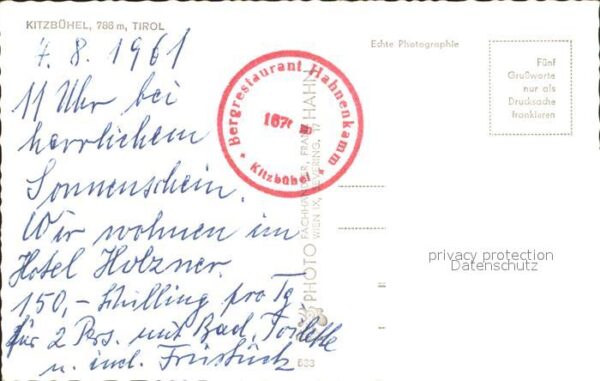 KITZBÜHEL, 786 m, TIROL
7.8.1961
11 Uhr bei
herrlichem
Sonnenschein.
Wir wohnen im
Hotel Holzner.
150,- Schilling pro Tg
für 2 Pers. mit Bad, Toilette
u. incl. Frühstück
Bergrestaurant Hahnenkamm
1670 m
* Kitzbühel *
PHOTO
HAHN
FACHHÄNDLER, FRANZ
WIEN IX, SEVERING, 17
533
Echte Photographie
Fünf
Grußworte
nur als
Drucksache
frankieren
privacy protection
Datenschutz